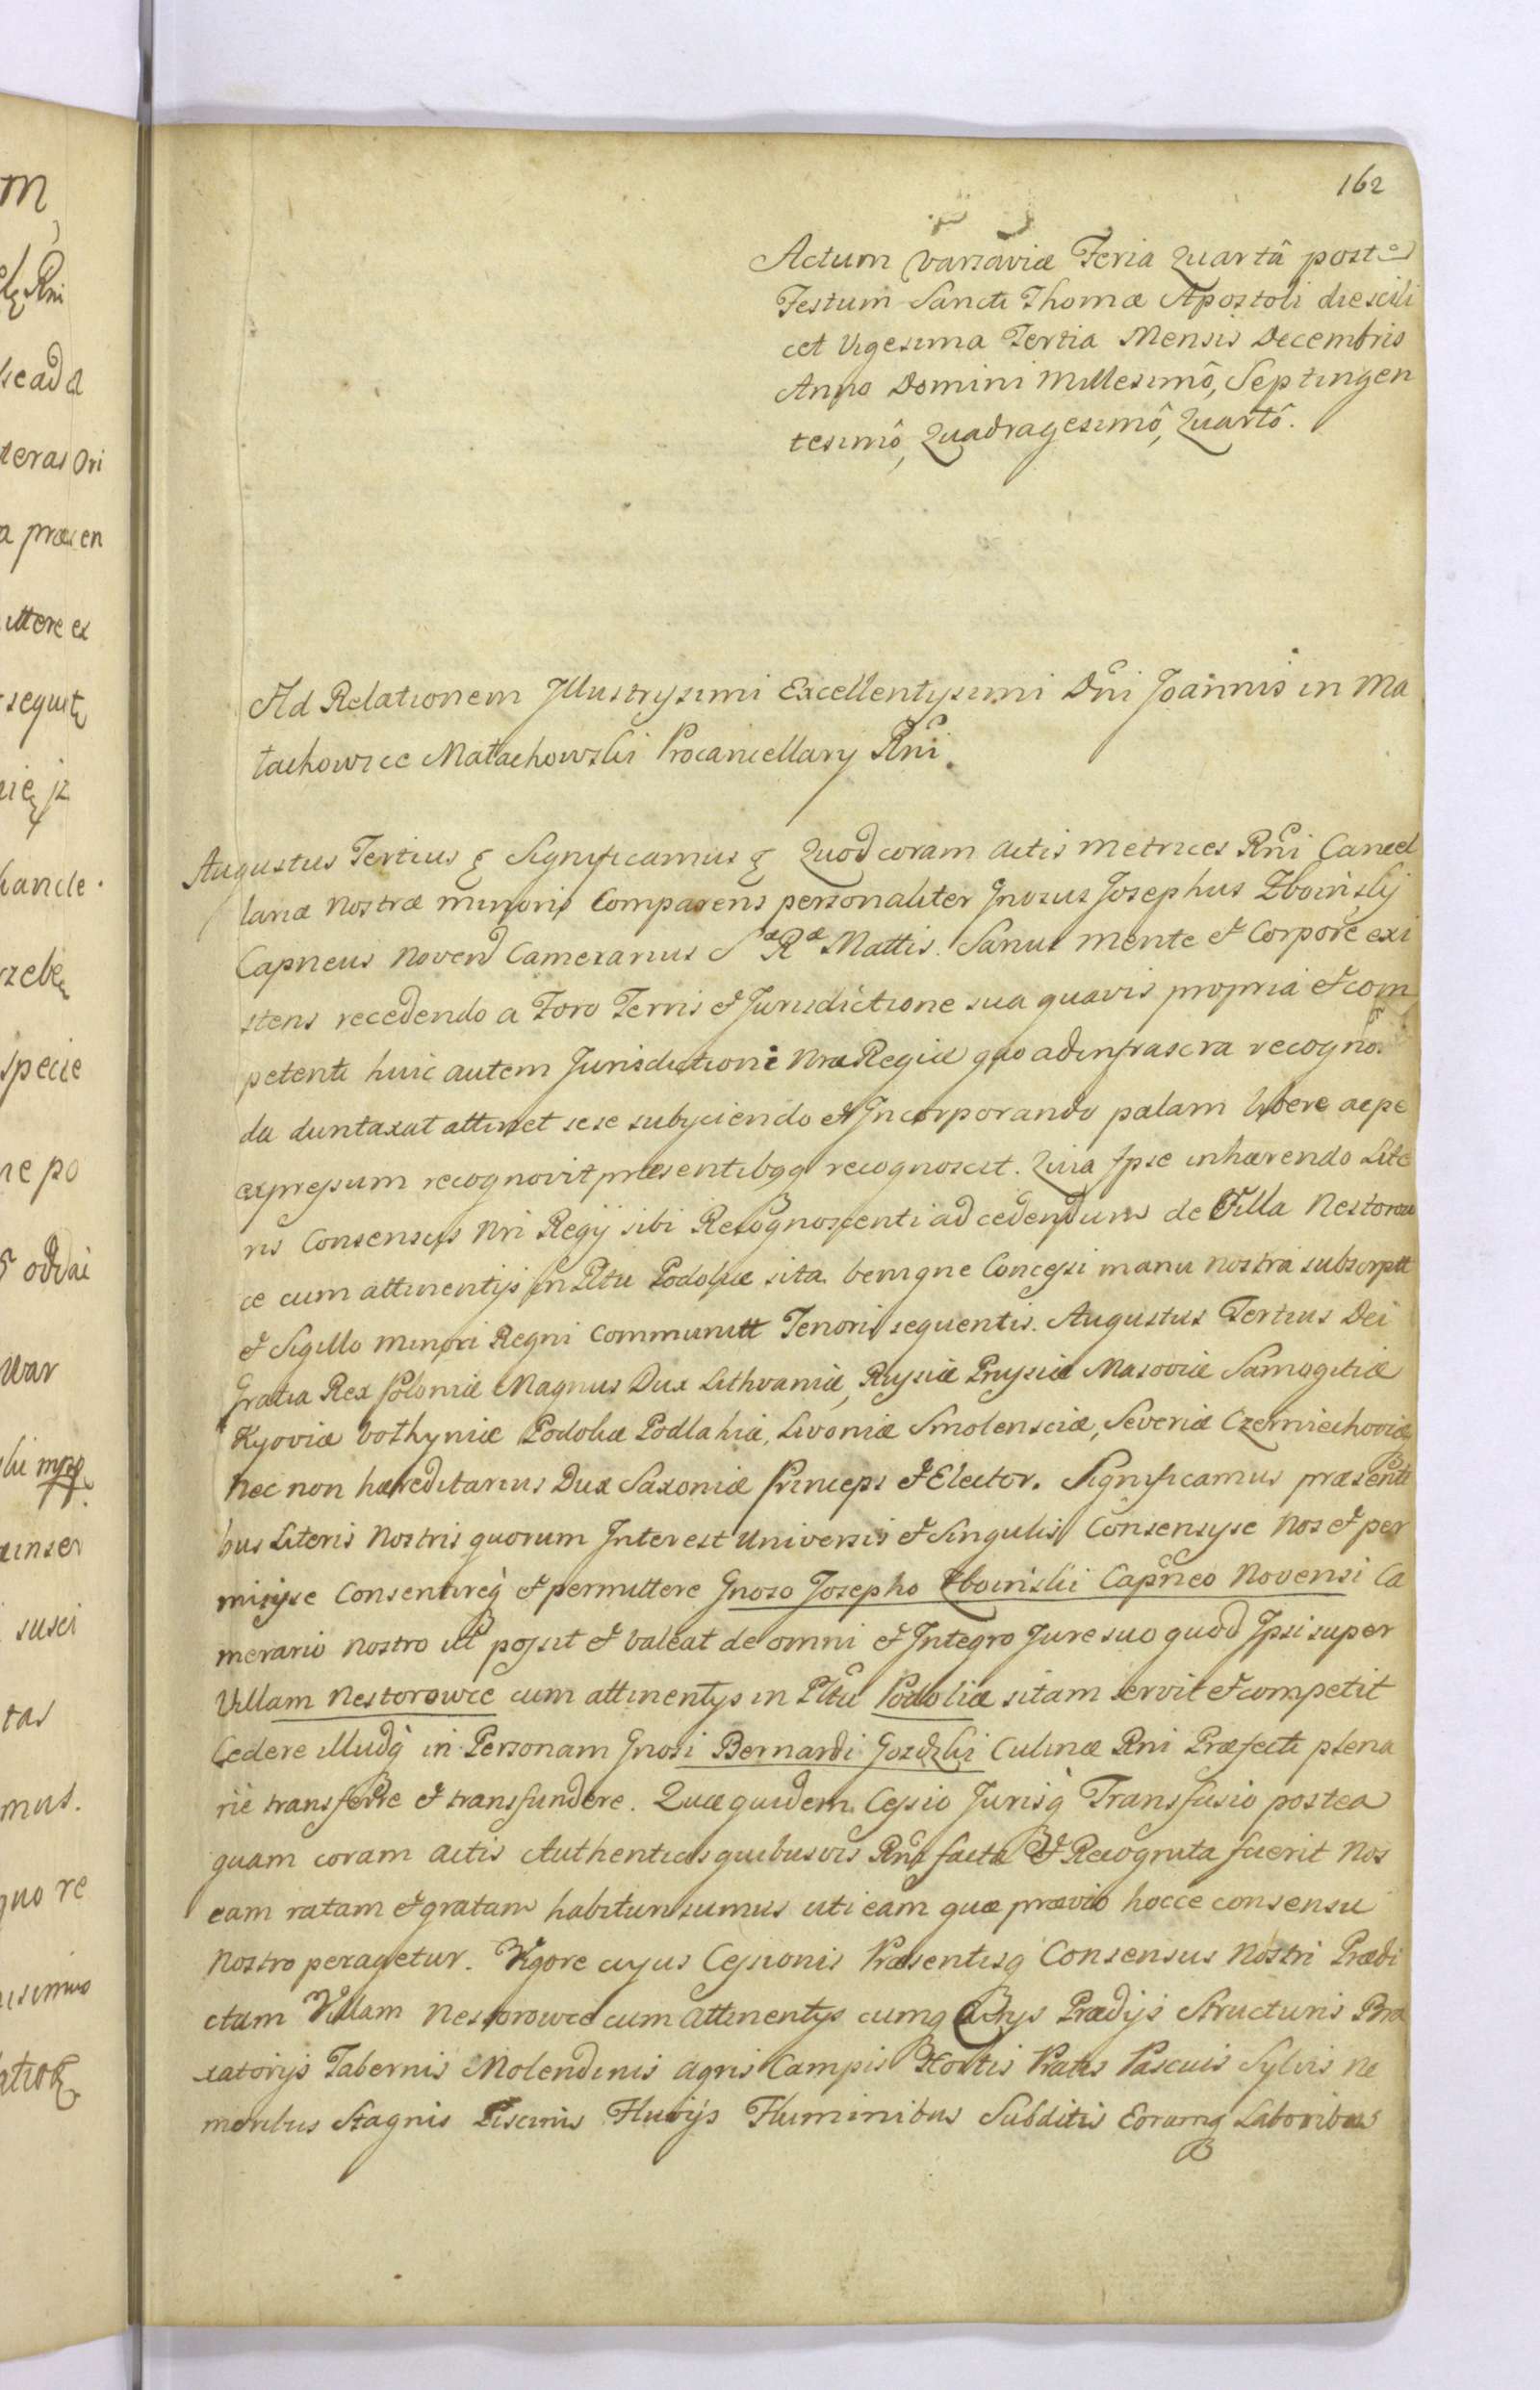 162
Actum Varsaviæ Feria Quartâ post
Festum Sancti Thomæ Apostoli die scili
cet Vigesima Tertia Mensis Decembris
Anno Domini Millesimô, Septingen
tesimô, Quadragesimô, Quartô.
Ad Relationem Jllustryssimi Excellentyssimi Dni Joannis in Ma
łachowice Małachowski Procancellarij Rni.
Augustus Tertius Significamus Quod coram Actis Metrices Rni Cancel
lariæ Nostræ minoris Comparens personaliter Gnosus Josephus Zboiński
Capneus Noven Camerarius S æ R æ Mattis. Sanus mente et Corpore exi
stens recedendo a Foro Terris et Jurisdictione sua quavis propria et com
petenti huic autem Jurisdictioni Nræ Regiæ quo ad infrascra recognos
da duntaxat attinet sese subyciendo et Jncorporando palam libere ac pe
expressum recognovit præsentibqq recognoscit. Quia Ipse inhærendo Lite
ris Consensus Nri Regij sibi Recognoscenti ad cedendum de Villa Nestorow
ce cum attinentijs in Pltu Podoliæ sita benigne Concessi manu nostra subscriptt
et Sigillo Minori Regni Communitt Tenoris sequentis. Augustus Tertius Dei
Gratia Rex Poloniæ Magnus Dux Lithvaniæ, Russiæ Prussiæ Masoviæ Samogitiæ
Kyoviæ Vothyniæ Podoliæ Podlahiæ, Livoniæ Smolensciæ, Severiæ Czerniechoviæq
Nec non hæreditarius Dux Saxoniæ Princeps et Elector. Significamus præsenti
bus Literis Nostris quorum Interest Universis et Singulis Consensysse Nos et per
misysse Consentireq et permittere Gnoso Josepho Zboiński Capneo Novensi Ca
merario nostro ut possit et valeat de omni et Integro Jure suo quod Ipsi super
Villam Nestorowce cum attinentys in Pltu Podoliæ sitam servit et competit
Cedere illudq in Personam Gnosi Bernardi Gozdzki Culinæ Rni Præfecti plena
riè transferre et transfundere. Quæ quidem Cessio Jurisq Transfusio postea
quam coram Actis Authenticis quibusvis Rni facta et Recognita fuerit Nos
eam ratam et gratam habituri sumus uti eam quæ prævio hocce consensu
Nostro peragetur. Vigore cujus Cessionis Præsentisq Consensus Nostri Prædi
ctam Villam Nestorowce cum attinentys cumq Prædijs Structuris Bra
xatorijs Tabernis Molendinis Agris Campis Hortis Pratis Pascuis Sylvis Ne
moribus Stagnis Piscinis Fluvijs Fluminibus Subditis Eorumq Laboribus